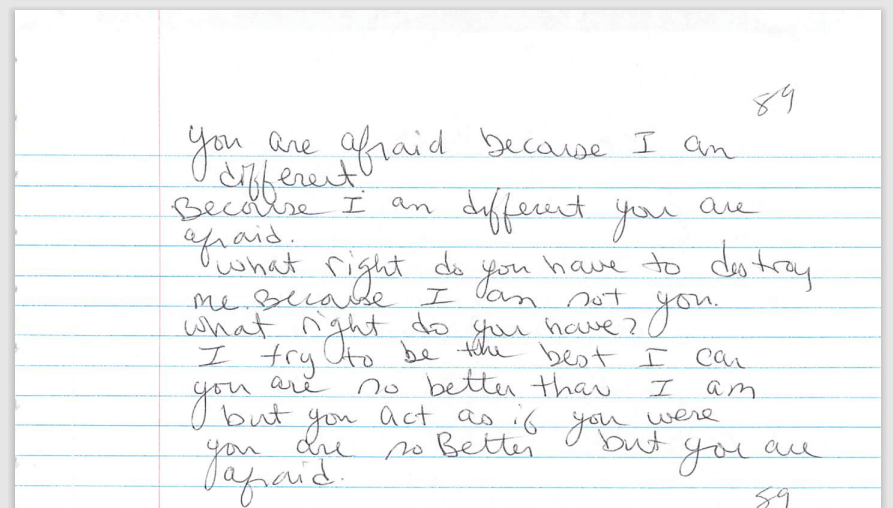 89
you are afraid because I am
different
Because I am different you are
afraid.
what right do you have to destroy
me. Because I am not you.
what right do you have?
I try to be the best I can
you are no better than I am
but you act as if you were
you are no Better but you are
afraid.
89